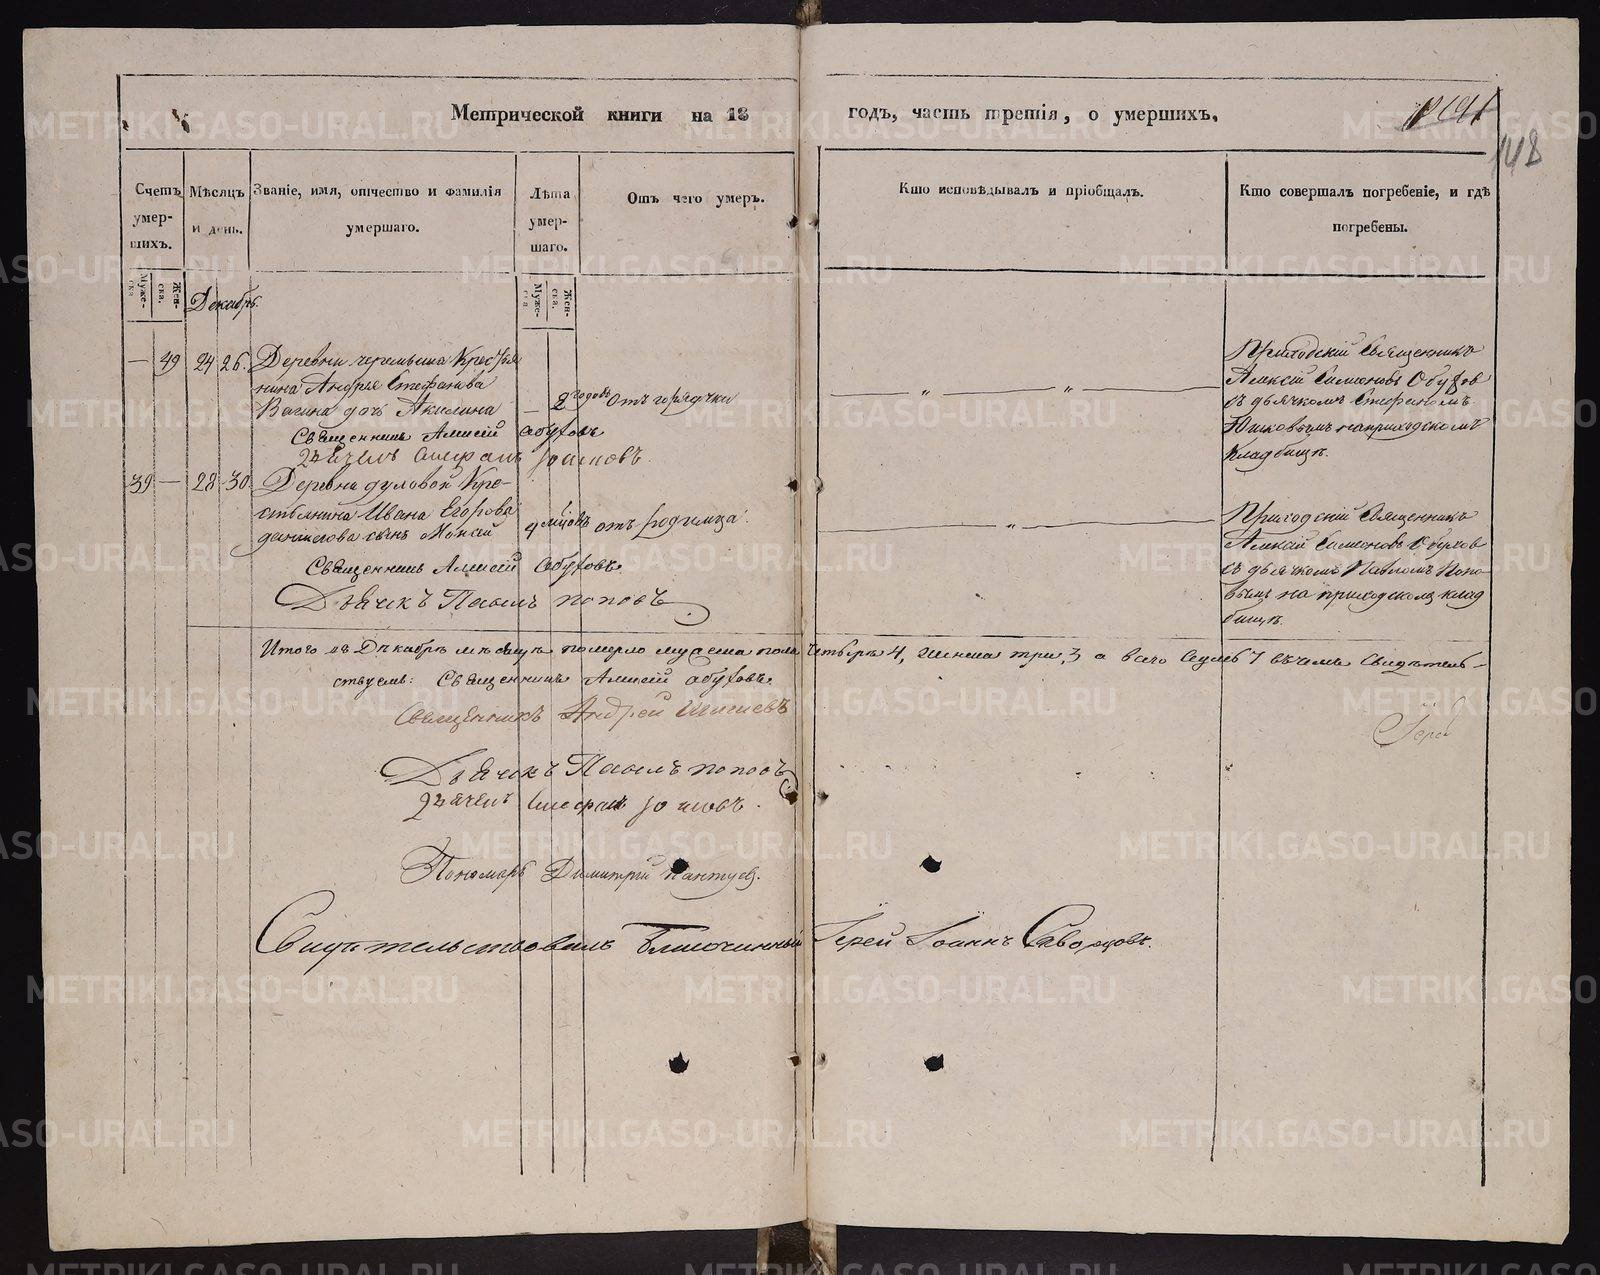 Метрической книги на 18 годъ, часть третія, о умершихъ.
148
Счетъ умер-шихъ.
Мѣсяцъ и день.
Званіе, имя, отчество и фамилія умершаго.
Лѣта умер-шаго.
Отъ чего умеръ.
Кто исповѣдывалъ и пріобщалъ.
Кто совершалъ погребеніе, и гдѣ погребены.
Муже-ска
Жен-ска.
Декабрь
Муже-ска
Жен-ска.
— 49 24 26. Деревни Крестья
нина Андрея Стефанова
Вагина дочь Акилина — 2 годовъ Отъ горячки
Священникъ Алексій Обуховъ
Дьячекъ Стефанъ Юшковъ.
Приходскій Священникъ
Алексій Симоновъ Обухов
съ дьячкомъ Стефаномъ
Юшковымъ на приходскомъ
кладбищѣ.
39 — 28 30 Деревни дуловой Кре-
стьянина Ивана Егорова
данилова сынъ 4 мцовъ отъ родимца.
Священникъ Алексій Обуховъ
Дьячекъ Павелъ Поповъ
Приходскій Священникъ
Алексій Симоновъ Обухов
съ дьячкомъ Павломъ Попо
вымъ на приходскомъ клад
бищѣ.
Итого въ Декабрѣ мѣсяцѣ померло мужеска пола четыре 4, женска три, 3 а всего седмь 7 въ чемъ Свидѣтель-
ствуемъ: Священникъ Алексій Обуховъ
Священникъ Андрей
Іерей
Дьячекъ Павелъ Поповъ
Дьячекъ Стефанъ Юшковъ.
Пономарь Димитрій
Свидѣтельствовалъ Благочинный Іерей Іоаннъ Скворцовъ.
METRIKI.GASO-URAL.RU